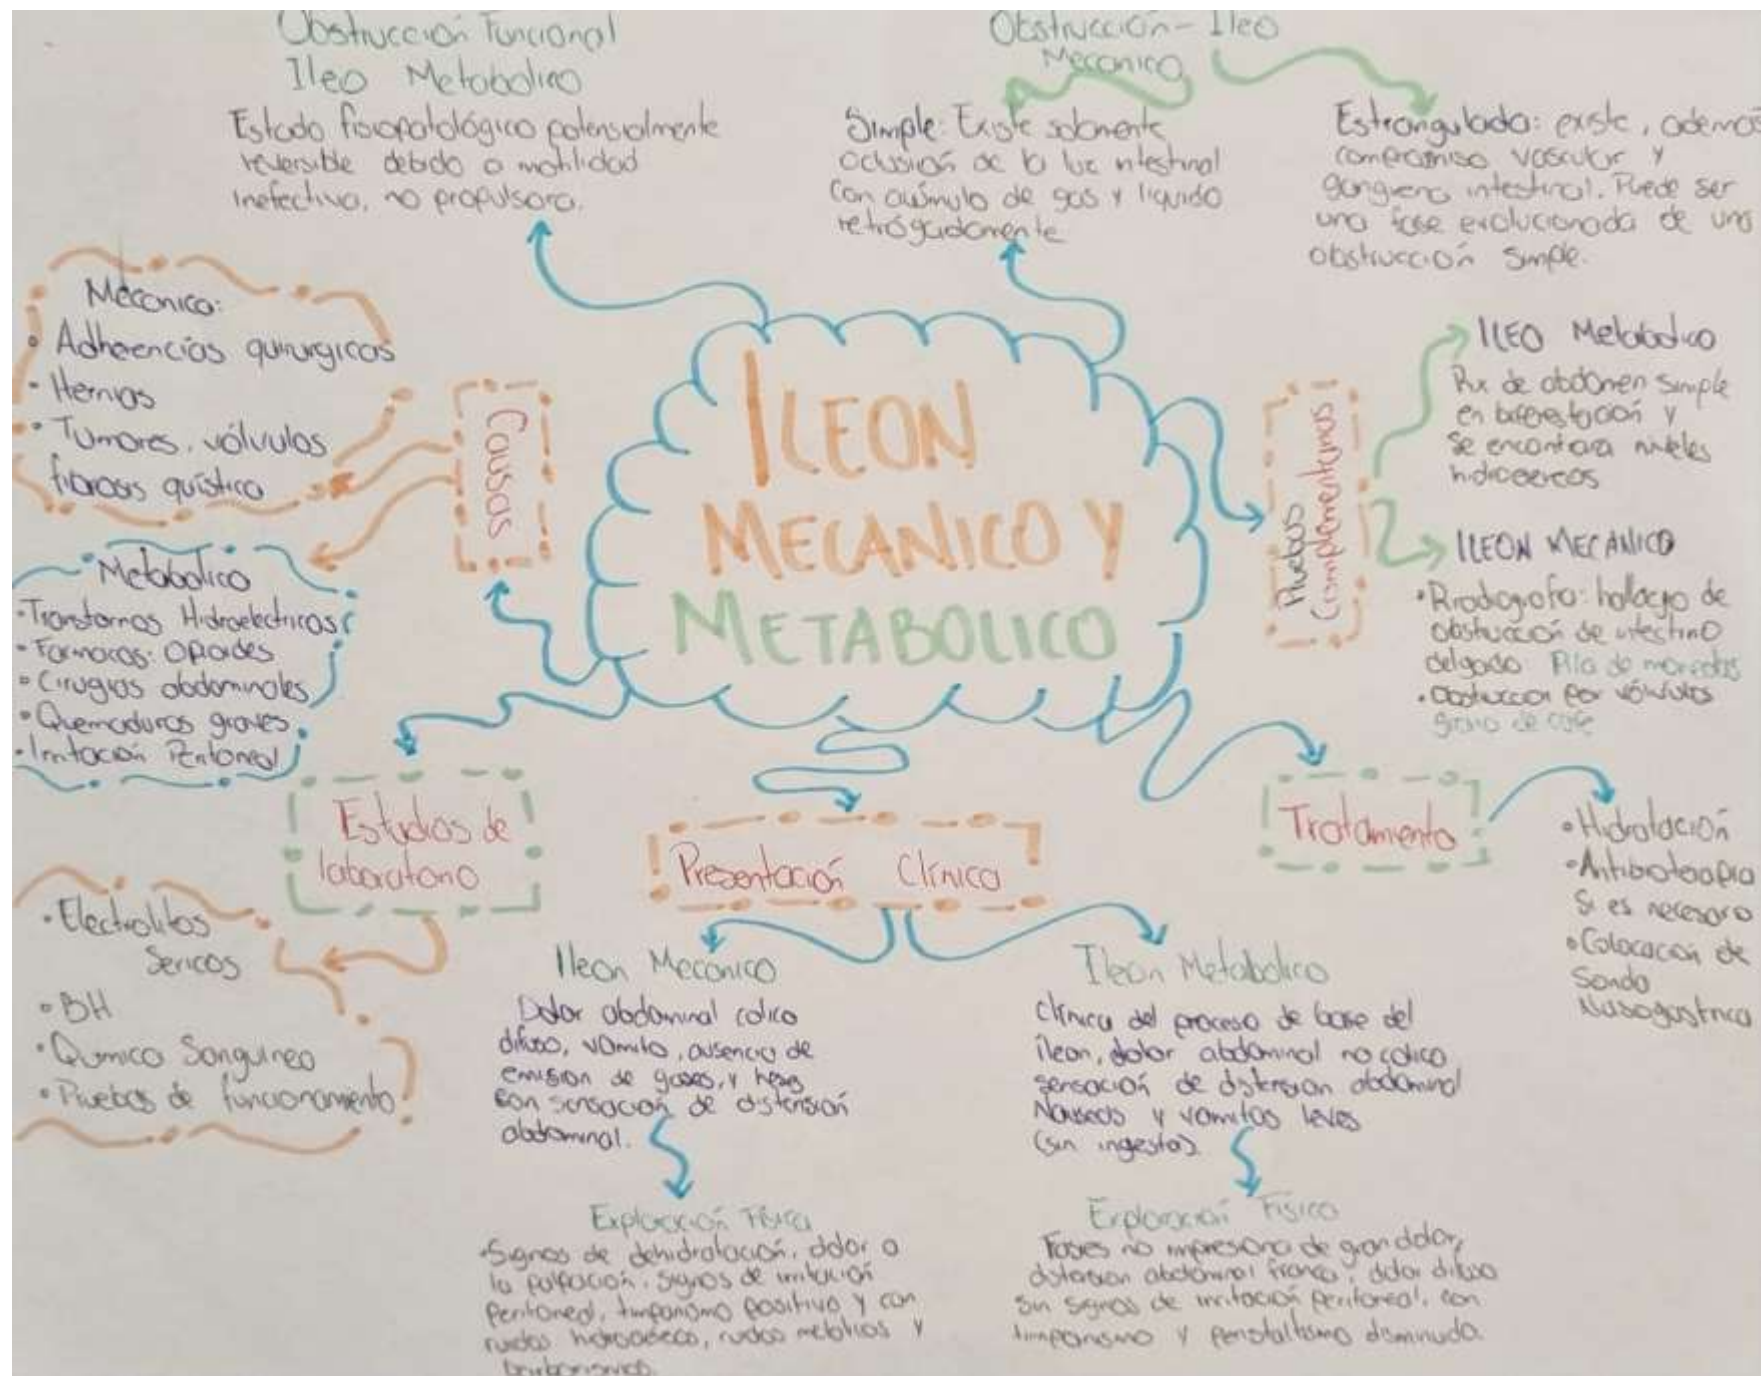 Obstrucción Funcional
Ileo Metabolico
Estado fisiopatológico potensialmente
reversible debido a motilidad
inefectiva, no propulsora.
Obstrucción - Ileo
Mecanico
Simple: Existe solamente
oclusión de la luz intestinal
con acúmulo de gas y liquido
retrógadamente
Estrangulada: existe, además
compromiso vascular y
gangrena intestinal. Puede ser
una fase evolucionada de una
obstrucción simple.
Mecanica:
• Adherencias quirurgicas
• Hernias
• Tumores, vólvulos
fibrosis quística
Causas
Metabolico
• Transtornos Hidroelectricos
• Farmacos: Opioides
• Cirugias abdominales
• Quemaduras graves
• Irritación Peritoneal
ILEON
MECANICO Y
METABOLICO
Pruebas
Complementarias
ILEO Metabolico
Rx de abdomen simple
en bipedestación y
se encontrara niveles
hidroaereos
ILEON MECANICO
• Radiografia: hallazgo de
obstrucción de intestino
delgado Pila de monedas
• Obstruccion por vólvulos
grano de café
Estudios de
laboratorio
• Electrolitos
Sericos
• BH
• Quimica Sanguinea
• Pruebas de funcionamiento
Presentación Clínica
Ileon Mecanico
Dolor abdominal colico
difuso, vomito, ausencia de
emision de gases, y heces
con sensación de distensión
abdominal.
Exploración Física
• Signos de dehidratación, dolor a
la palpación, signos de irritación
peritoneal, timpanismo positivo y con
ruidos hidroaereo, ruidos metalicos y
Ileon Metabolico
Clínica del proceso de base del
íleon, dolor abdominal no colico
sensación de distension abdominal
Nauseas y vomitos leves
(sin ingesta).
Exploración Fisica
Fases no impresiona de gran dolor,
distension abdominal franca, dolor difuso
sin signos de irritación peritoneal, con
timpanismo y peristaltismo disminuido.
Tratamiento
• Hidratación
• Antibioterapia
Si es necesario
• Colocacion de
Sonda
Nasogastrica